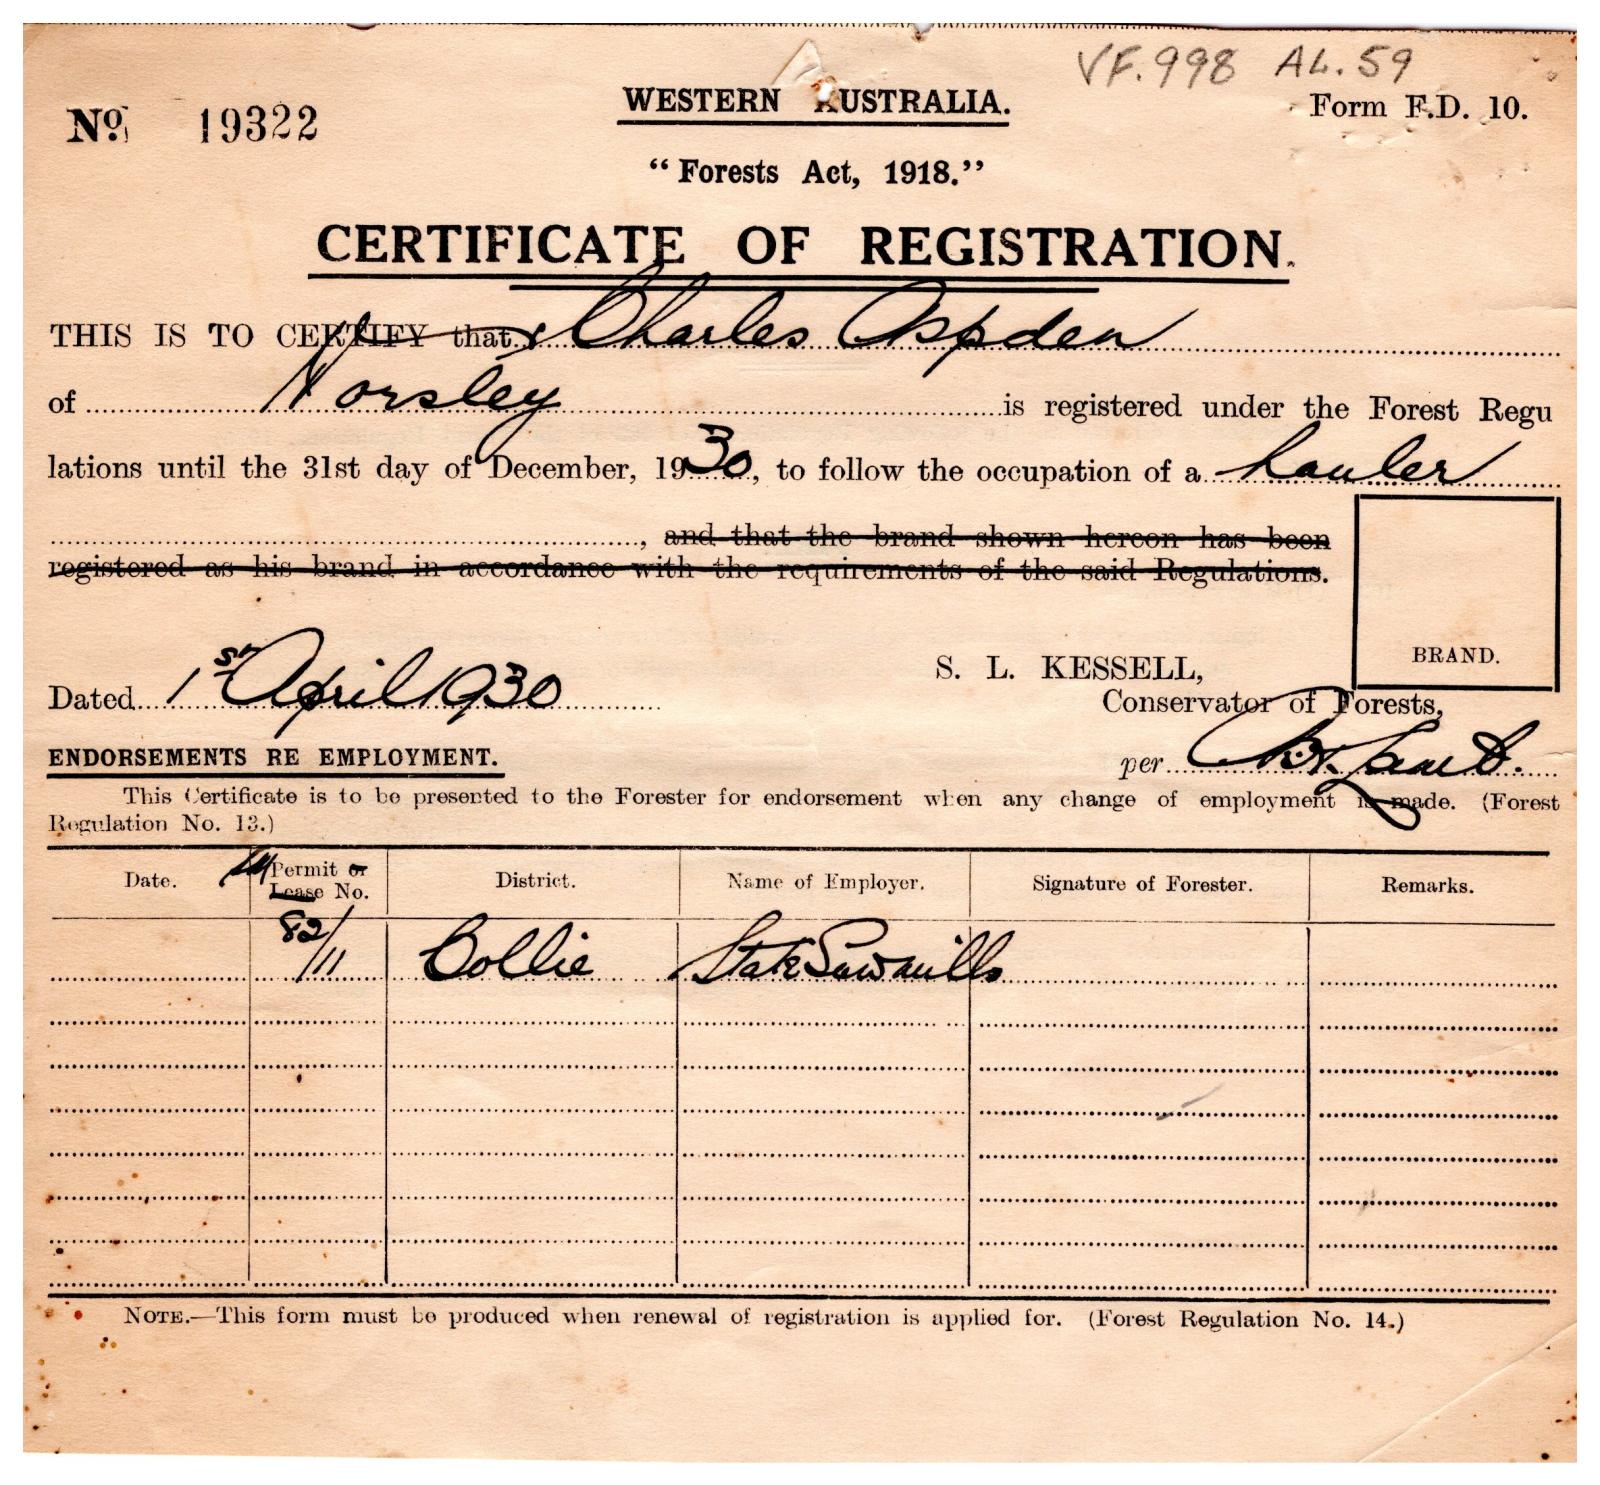 VF.998 AL.59
No. 19322 WESTERN AUSTRALIA. Form F.D. 10.
“Forests Act, 1918.”
CERTIFICATE OF REGISTRATION.
THIS IS TO CERTIFY that Charles Aspden
of Worsley is registered under the Forest Regu
lations until the 31st day of December, 1930, to follow the occupation of a hauler
, and that the brand shown hereon has been
registered as his brand in accordance with the requirements of the said Regulations.
BRAND.
Dated 1st April 1930 S. L. KESSELL,
Conservator of Forests,
ENDORSEMENTS RE EMPLOYMENT. per
This Certificate is to be presented to the Forester for endorsement when any change of employment is made. (Forest
Regulation No. 13.)
Date. Permit or Lease No. District. Name of Employer. Signature of Forester. Remarks.
82/11 Collie State Sawmills
NOTE.—This form must be produced when renewal of registration is applied for. (Forest Regulation No. 14.)